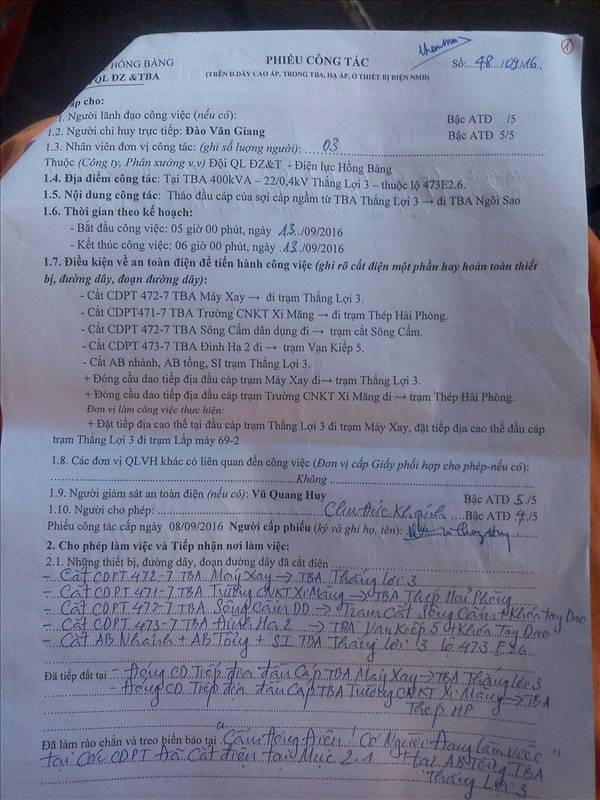 HỒNG BÀNG
QL ĐZ &TBA
PHIẾU CÔNG TÁC
(TRÊN Đ.DÂY CAO ÁP, TRONG TBA, HẠ ÁP, Ở THIẾT BỊ ĐIỆN NMĐ)
Số: 48 /09/16
1
cấp cho:
1. Người lãnh đạo công việc (nếu có): Bậc ATĐ /5
1.2. Người chỉ huy trực tiếp: Đào Văn Giang Bậc ATĐ 5/5
1.3. Nhân viên đơn vị công tác: (ghi số lượng người): 03
Thuộc (Công ty, Phân xưởng v.v) Đội QL ĐZ&T - Điện lực Hồng Bàng
1.4. Địa điểm công tác: Tại TBA 400kVA – 22/0,4kV Thắng Lợi 3 – thuộc lộ 473E2.6.
1.5. Nội dung công tác: Tháo đầu cáp của sợi cáp ngầm từ TBA Thắng Lợi 3 → đi TBA Ngôi Sao
1.6. Thời gian theo kế hoạch:
- Bắt đầu công việc: 05 giờ 00 phút, ngày 13../09/2016
- Kết thúc công việc: 06 giờ 00 phút, ngày .13../09/2016
1.7. Điều kiện về an toàn điện để tiến hành công việc (ghi rõ cắt điện một phần hay hoàn toàn thiết
bị, đường dây, đoạn đường dây):
- Cắt CDPT 472-7 TBA Máy Xay → đi trạm Thắng Lợi 3.
- Cắt CDPT471-7 TBA Trường CNKT Xi Măng → đi trạm Thép Hải Phòng.
- Cắt CDPT 472-7 TBA Sông Cấm dân dụng đi → trạm cắt Sông Cấm.
- Cắt CDPT 473-7 TBA Đình Hạ 2 đi → trạm Vạn Kiếp 5.
- Cắt AB nhánh, AB tổng, SI trạm Thắng Lợi 3.
+ Đóng cầu dao tiếp địa đầu cáp trạm Máy Xay đi→ trạm Thắng Lợi 3.
+ Đóng cầu dao tiếp địa đầu cáp trạm Trường CNKT Xi Măng đi → trạm Thép Hải Phòng.
Đơn vị làm công việc thực hiện:
+ Đặt tiếp địa cao thế tại đầu cáp trạm Thắng Lợi 3 đi trạm Máy Xay, đặt tiếp địa cao thế đầu cáp
trạm Thắng Lợi 3 đi trạm Lắp máy 69-2
1.8. Các đơn vị QLVH khác có liên quan đến công việc (Đơn vị cấp Giấy phối hợp cho phép-nếu có):
Không
1.9. Người giám sát an toàn điện (nếu có): Vũ Quang Huy Bậc ATĐ 5./5
1.10. Người cho phép: Chu Đức Khánh Bậc ATĐ 4./5
Phiếu công tác cấp ngày 08/09/2016 Người cấp phiếu (ký và ghi họ, tên):
2. Cho phép làm việc và Tiếp nhận nơi làm việc:
2.1. Những thiết bị, đường dây, đoạn đường dây đã cắt điện
- Cắt CDPT 472-7 TBA Máy Xay → TBA Thắng lợi 3
- Cắt CDPT 471-7 TBA Trường CNKT Xi Măng → TBA Thép Hải Phòng
- Cắt CDPT 472-7 TBA Sông Cấm DD → Trạm Cắt Sông Cấm + Khóa Tay Dao
- Cắt CDPT 473-7 TBA Đình Hạ 2 → TBA Vạn Kiếp 5 + Khóa Tay Dao
- Cắt AB Nhánh + AB Tổng + SI TBA Thắng lợi 3 lộ 473 E2.6
Đã tiếp đất tại - Đóng CD Tiếp địa đầu Cáp TBA Máy Xay → TBA Thắng lợi 3
- Đóng CD Tiếp địa đầu Cáp TBA Trường CNKT Xi Măng → TBA
Thép HP
Đã làm rào chắn và treo biển báo tại "Cấm đóng Điện! Có Người Đang làm việc"
tại Các CDPT Đã Cắt điện tại Mục 2.1 + tại AB Tổng TBA
Thắng Lợi 3